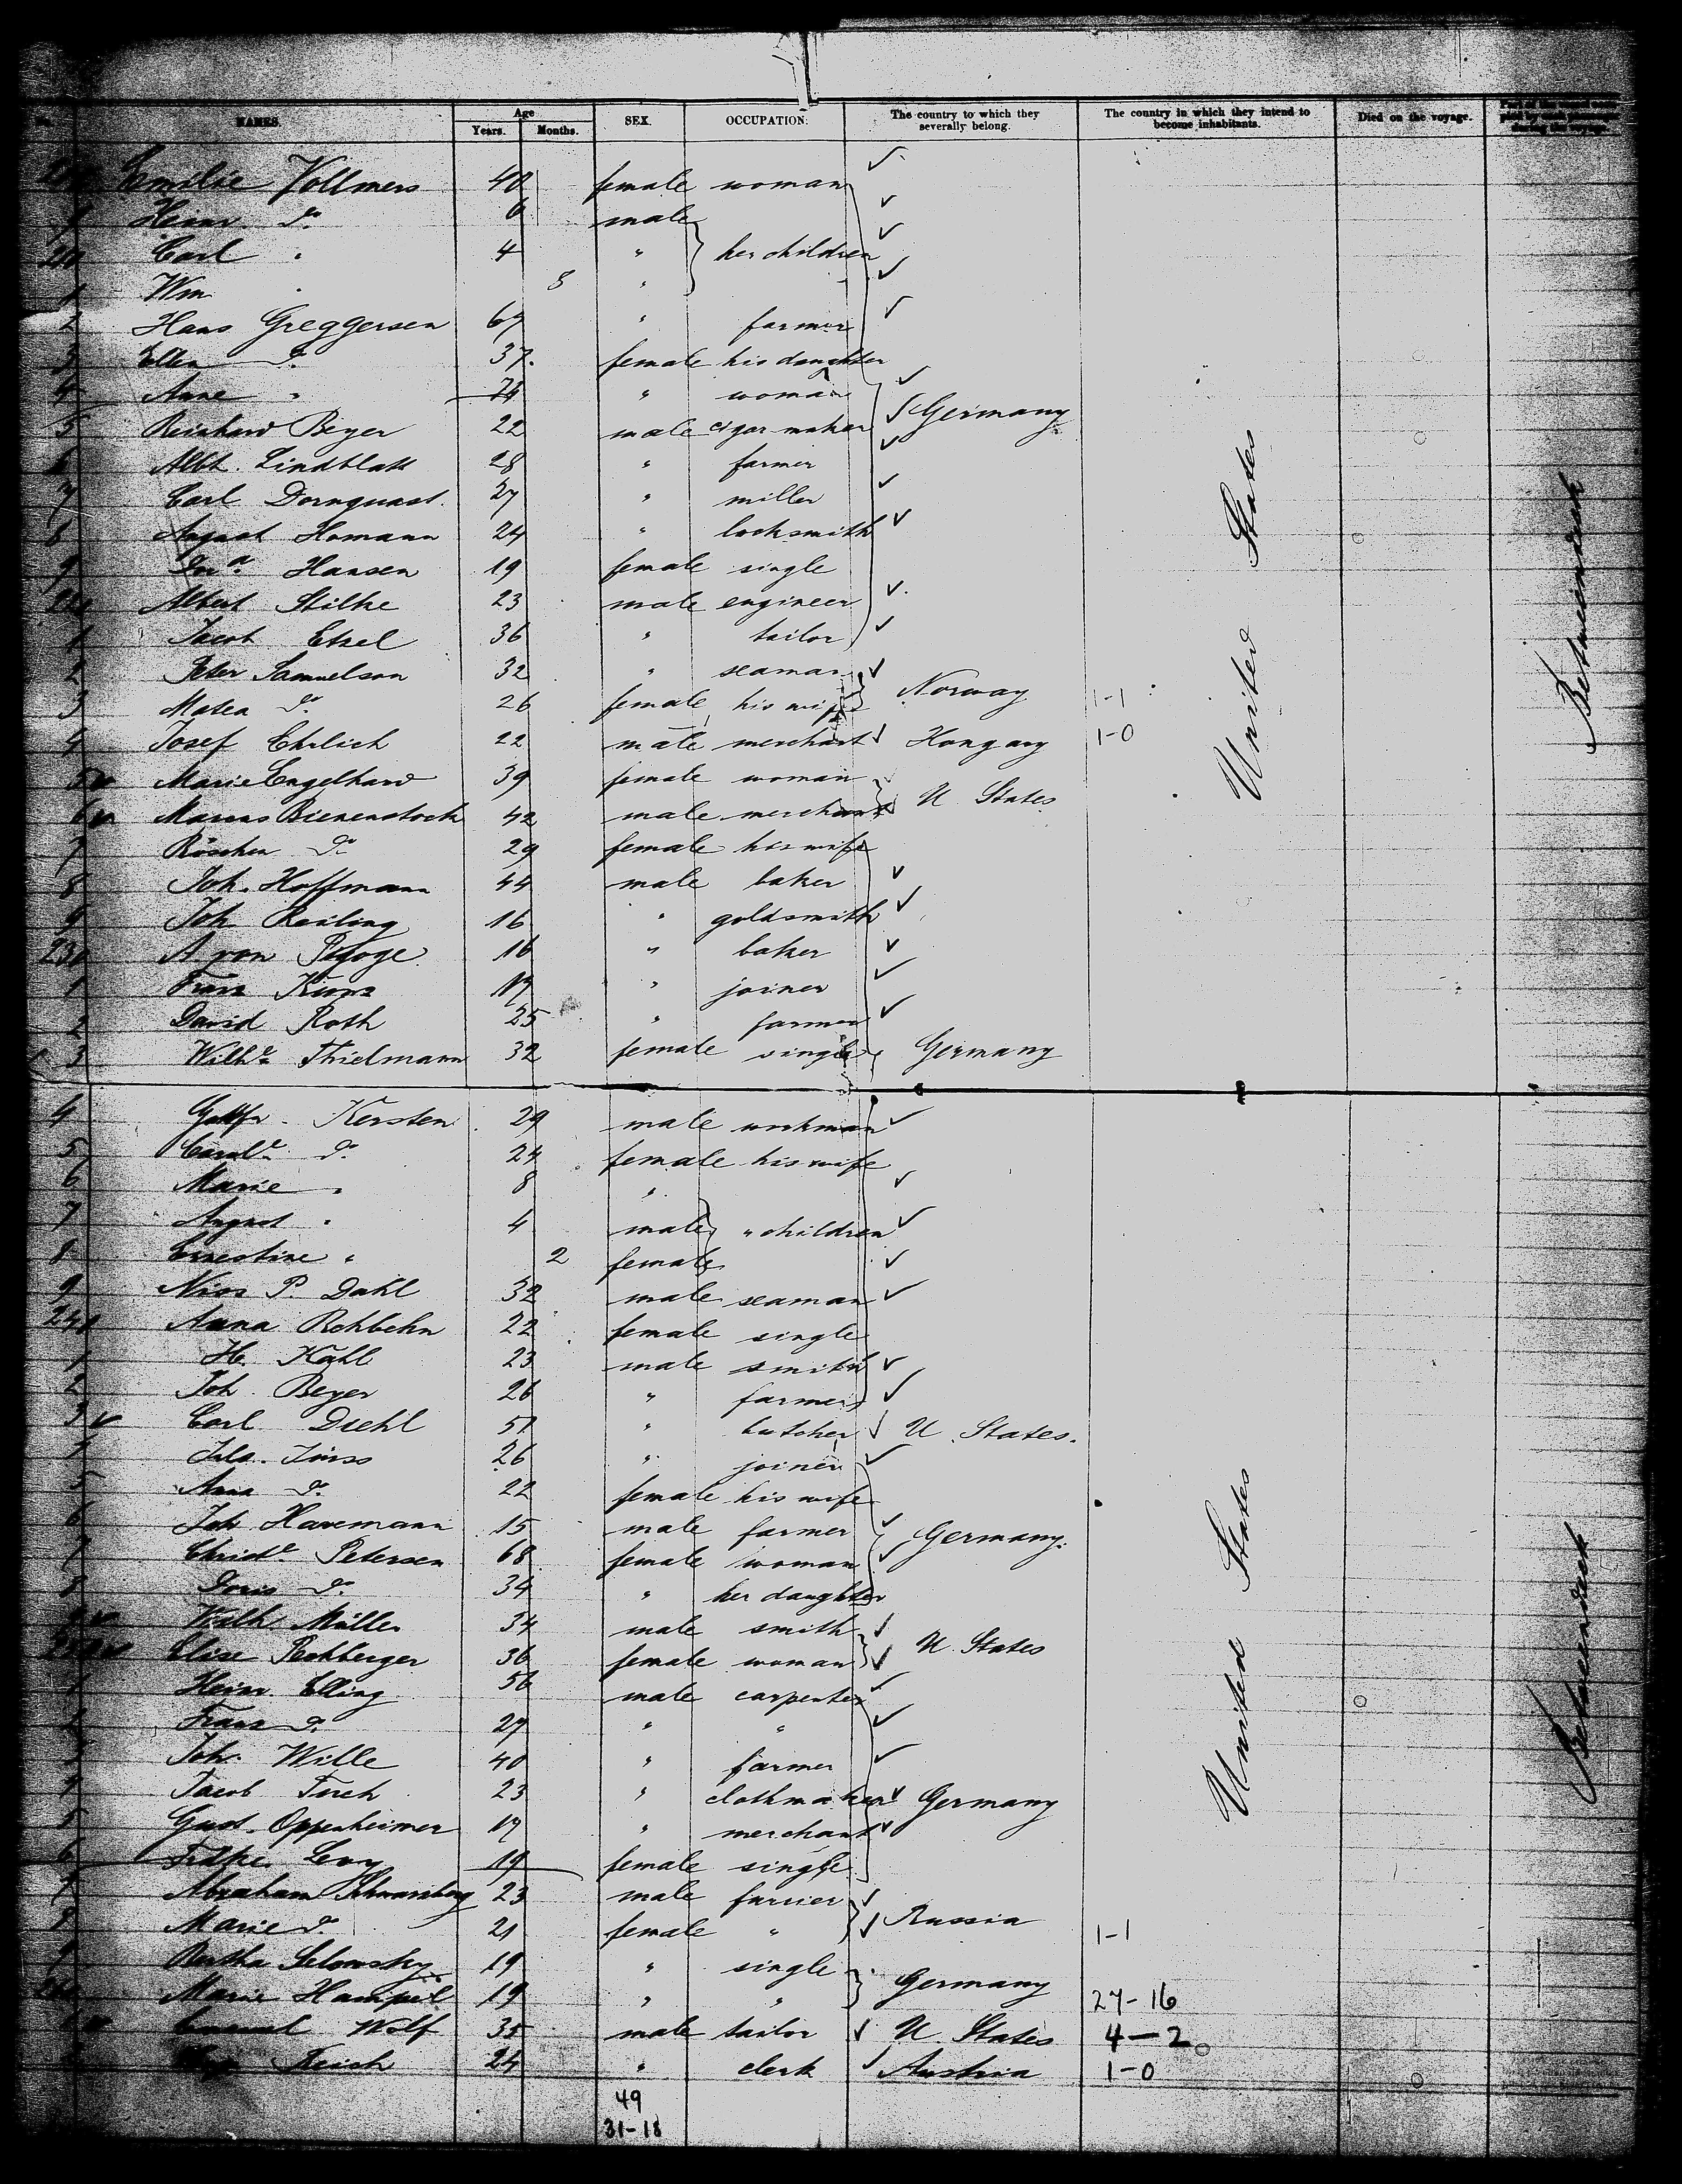 No. NAMES. Age Years. Months. SEX. OCCUPATION. The country to which they severally belong. The country in which they intend to become inhabitants. Died on the voyage. Part of the vessel occupied by each passenger during the voyage.
Emilie Vollmers 40 female woman
9 Heinr. do 6 male
210 Carl " 4 " her children
1 Wm " 3 "
2 Hans Greggersen 67 " farmer
3 Ellen do 37 female his daughter
4 Anne " 24 " woman
5 Reinhard Beyer 22 male cigar maker Germany
6 Albt. Lindblatt 28 " farmer
7 Carl Dornquast 27 " miller
8 August Homann 24 " locksmith
9 Hansen 19 female single
220 Albert Stilke 23 male engineer
1 Jacob Etzel 36 " tailor
2 Peter Samuelson 32 " seaman
3 Matea do 26 female his wife Norway 1-1
4 Josef Ehrlich 22 male merchant Hongary 1-0
5 Marie Engelhard 39 female woman
6 Marcus Bienenstock 42 male merchant U. States
7 Röschen do 29 female his wife
8 Joh. Hoffmann 44 male baker
9 Joh Reiling 16 " goldsmith
230 A von 16 " baker
1 Franz 17 " joiner
2 David Roth 25 " farmer
3 Wilhe Thielmann 32 female single Germany
United States
Betweendeck
4 Gottfr. Kersten 29 male workman
5 Carole do 24 female his wife
6 Marie " 8 "
7 August " 4 male " children
8 Ernestine " 2 female
9 Niss P. Dahl 32 male seaman
240 Anna Rohbehn 22 female single
1 H. Kahl 23 male smith
2 Joh. Beyer 26 " farmer
3 Carl Diehl 51 " butcher U. States.
4 Jürss 26 " joiner
5 Anna do 22 female his wife
6 Joh Havemann 15 male farmer Germany.
7 Christe Petersen 68 female woman
8 Doris do 34 " her daughter
9 Wilh. Müller 34 male smith
250 Elise Rehberger 36 female woman U. States
1 Heinr. Elling 56 male carpenter
2 Franz do 27 " "
3 Joh. Wille 40 " farmer
4 Jacob 23 " clothmaker Germany
5 Gust. Oppenheimer 17 " merchant
6 Levy 19 female single
7 Abraham 23 male furrier
8 Marie do 21 female " Russia 1-1
9 Bertha 19 " single
260 Marie Hampel 19 " " Germany 27-16
1 Wolf 35 male tailor U. States 4-2
24 " clerk Austria 1-0
United States
Betweendeck
49
31-18